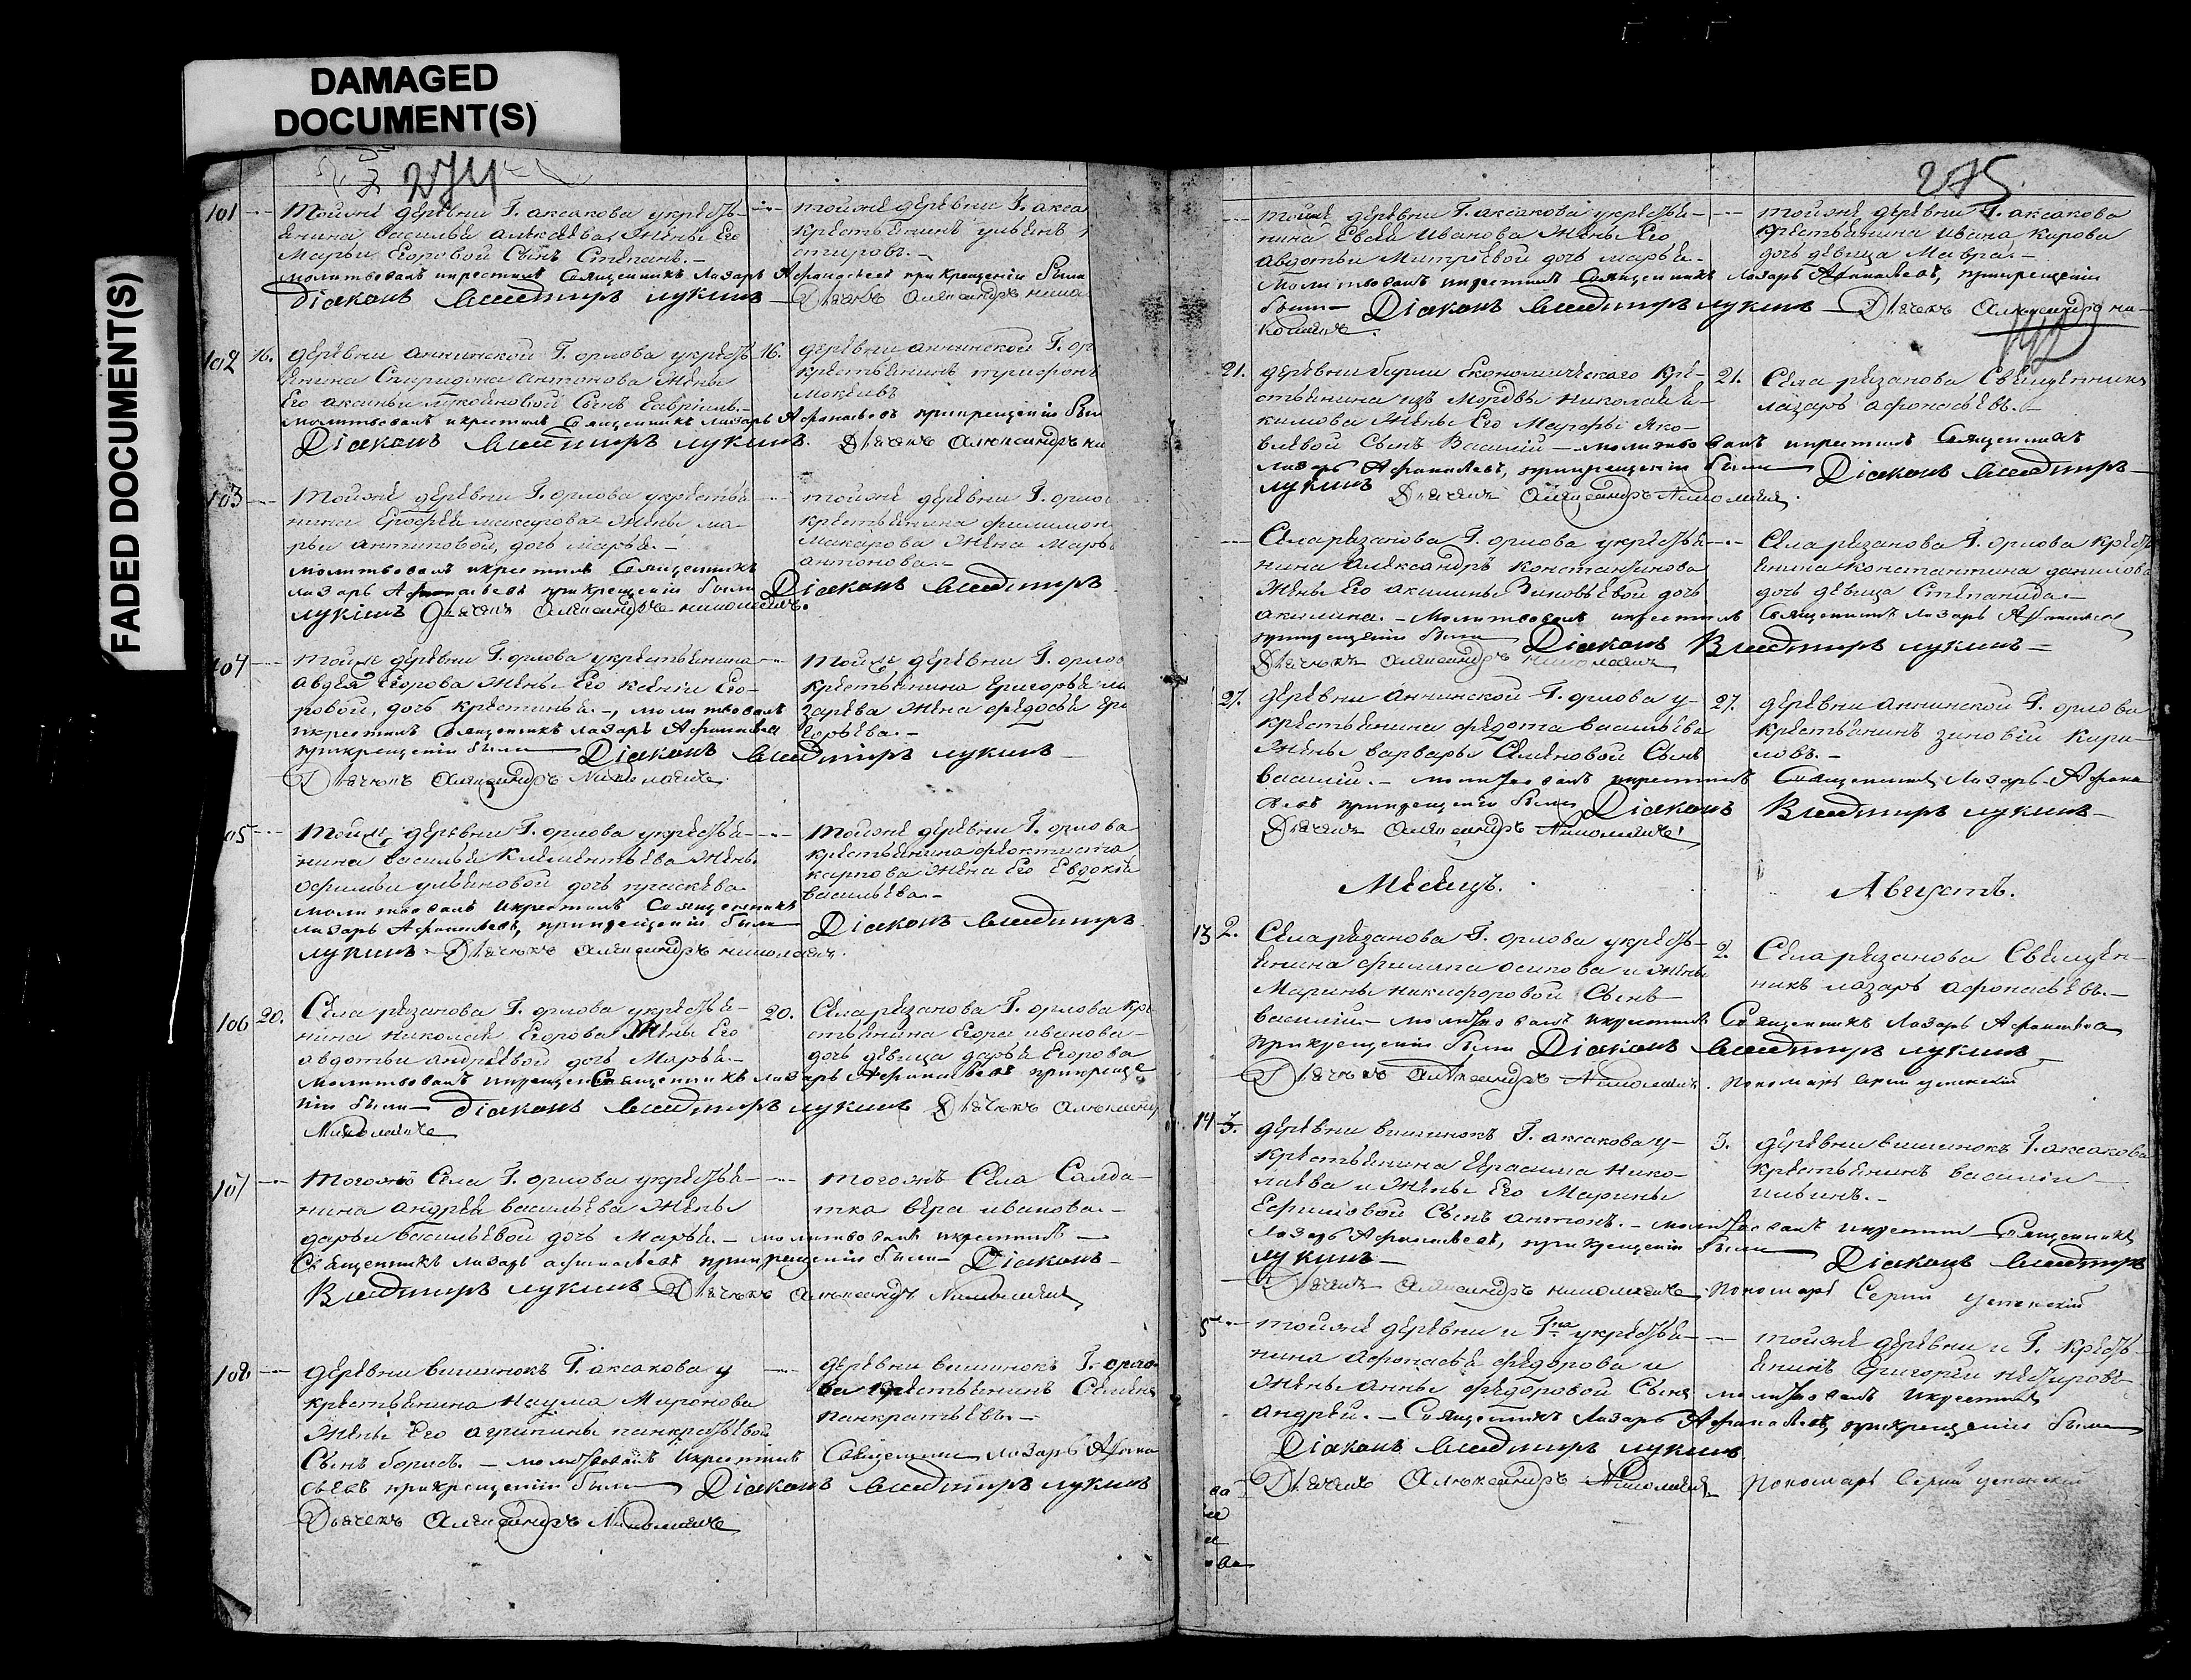 DAMAGED
DOCUMENT(S)
FADED DOCUMENT(S)
274
101 тойже деревни Г. аксакова укресть-
янина василья алексеева жены Его
Марьи Егоровой Сынъ Степанъ.-
молитвовалъ икрестилъ Священникъ Лазарь Афанасьевъ прикрещении были
Діаконъ Владимиръ лукинъ
тойже деревни Г. акса
крестьянинъ ульянъ
Дьячекъ Александръ
102 16. деревни аннинской Г. орлова укресть
янина Спиридона антонова жены
Его аксиньи Сынъ Гаврiилъ.-
молитвовалъ икрестилъ Священникъ лазарь Афанасьевъ прикрещении был
Діаконъ Владимиръ лукинъ. Дьячекъ Александръ ни
16. деревни аннинской Г. ор
крестьянинъ трифонъ
103 тойже деревни Г. орлова укрестья
нина Ерофея макарова жены ма-
рьи антиповой, дочь марья.-
молитвовалъ икрестилъ Священникъ
лазарь Афанасьевъ прикрещении были Діаконъ Владимиръ
лукинъ Дьячекъ Александръ николаевъ.
тойже деревни Г. орло
крестьянина филимон
макарова жена Марь
антонова.-
104 тойже деревни Г. орлова укрестьянина
авдея Егорова жены Его ксении Его-
ровой, дочь крестинья.-, молитвовалъ
икрестилъ Священникъ лазарь Афанасьевъ
прикрещении были Діаконъ Владимиръ лукинъ
Дьячекъ Александръ Николаевъ
тойже деревни Г. орлов
крестьянина григорья ла
зарева жена федосья гри
горьева.-
105 тойже деревни Г. орлова укрестья-
нина василья Клементьева жены
ульяновой дочь праскева
молитвовалъ икрестилъ Священникъ
лазарь Афанасьевъ, прикрещении были Діаконъ Владимиръ
лукинъ - Дьячекъ Александръ николаевъ.
тойже деревни Г. орлова
крестьянина феоктиста
карпова жена Его Евдокия
васильева.-
106 20. Села рязанова Г. орлова укрестья-
нина николая Егорова жены Его
авдотьи андреевой дочь Марья.-
Священникъ лазарь Афанасьевъ прикреще
нии были Діаконъ Владимиръ лукинъ Дьячекъ Александр
Николаевъ
20. Села рязанова Г. орлова кре
стьянина Егора иванова
дочь девица дарья Егорова
107 тогоже Села Г. орлова укрестья-
нина андрея васильева жены
дарьи васильевой дочь Марья.- молитвовалъ икрестилъ
Священникъ лазарь афанасьевъ прикрещении были Діаконъ
Владимиръ лукинъ Дьячекъ Александръ Николаевъ
тогожъ Села Салда-
тка вера иванова.-
108 деревни вишенокъ Г. аксакова у
крестьянина Наума Миронова
жены Его агрипины панкратьевой
Сынъ борисъ. - молитвовалъ икрестилъ Священникъ лазарь Афана
сьевъ прикрещении были Діаконъ Владимиръ лукинъ
Дьячекъ Александръ Николаевъ
деревни вишенокъ Г. орло
ва крестьянинъ Семенъ
панкратьевъ.-
275
тойже деревни Г. аксакова укрестья-
нина Евсея иванова жены Его
авдотьи Митревой дочь марья.-
молитвовалъ икрестилъ Священникъ Лазарь Афанасьевъ, прикрещении
были Діаконъ Владимиръ лукинъ - Дьячекъ Александръ ни-
колаевъ.
тойже деревни Г. аксакова
крестьянина ивана карова
дочь девица Мавра.-
21. деревни Економического кре-
стьянина изъ Мордвы николая Е-
кимова жены Его Марфы Яко-
влевой Сынъ Василий - молитвовалъ икрестилъ Священникъ
лазарь Афанасьевъ, прикрещении были Діаконъ Владимиръ
лукинъ Дьячекъ Александръ Николаевъ.
21. Села рязанова Священникъ
лазарь афонасьевъ.-
Села рязанова Г. орлова укрестья
нина александръ константинова
жены Его акилины Зиновьевой дочь
акилина.- Молитвовалъ икрестилъ Священникъ лазарь Афанасьевъ
прикрещении были Діаконъ Владимиръ лукинъ
Дьячекъ Александръ николаевъ
Села рязанова Г. орлова крест
янина константина данилова
дочь девица Степанида.-
27. деревни аннинской Г. орлова у-
крестьянина федота васильева
жены варвары Семеновой Сынъ
василий.- молитвовалъ икрестилъ Священникъ Лазарь Афана
сьевъ прикрещении были Діаконъ Владимиръ лукинъ
Дьячекъ Александръ Николаевъ
27. деревни аннинской Г. орлова
крестьянинъ зиновий кири-
ловъ.-
Месецъ. Августъ.
13 2. Села рязанова Г. орлова укресть-
янина филипа осипова и жены
Марины никифоровой Сынъ
василий.- молитвовалъ икрестилъ Священникъ Лазарь Афанасьевъ
прикрещении были Діаконъ Владимиръ лукинъ
Дьячекъ Александръ Николаевъ. Пономарь Сергий успенский
2. Села рязанова Священ-
никъ лазарь афонасьевъ.-
14 3. деревни вишенокъ Г. аксакова у-
крестьянина Герасима нико-
лаева и жены Его Марины
Ефимовой Сынъ антонъ.- молитвовалъ икрестил Священникъ
Лазарь Афанасьевъ, прикрещении были Діаконъ Владимиръ
лукинъ
Дьячекъ Александръ николаевъ Пономарь Сергий успенский
3. деревни вишенокъ Г. аксакова
крестьянинъ василий
ильинъ.-
5 тойже деревни и Гна укрестья-
нина афонасья федорова и
жены анны федоровой Сынъ молитвовалъ икрестилъ
андрей.- Священникъ Лазарь Афанасьевъ, прикрещении были
Діаконъ Владимиръ лукинъ
Дьячекъ Александръ Николаевъ Пономарь Сергий успенский
тойже деревни и Г. кресть
янинъ Григорий